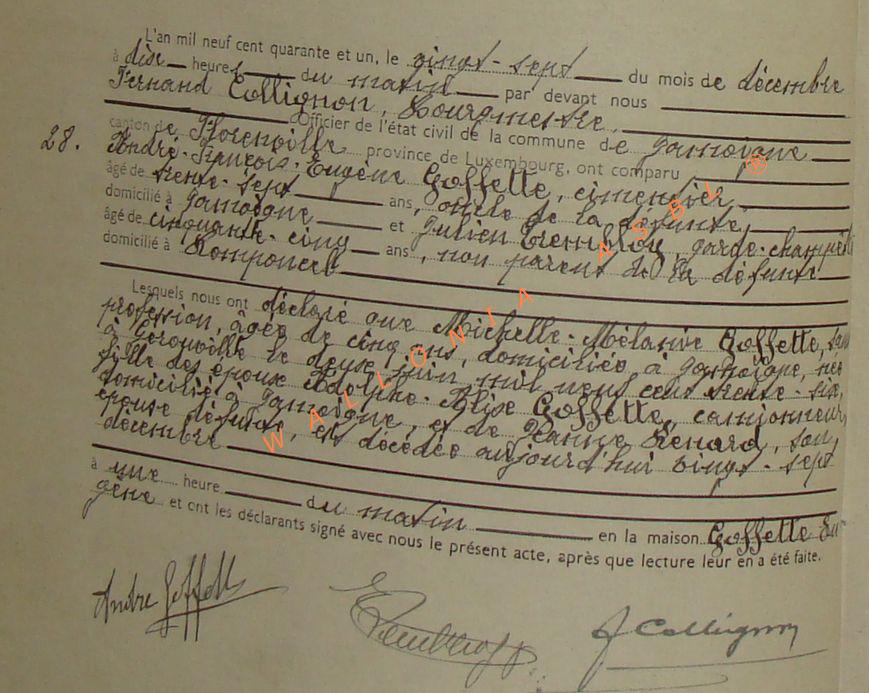 L'an mil neuf cent quarante et un, le vingt-sept du mois de décembre
à dix heures du matin par devant nous
Fernand Collignon, Bourgmestre,
Officier de l'état civil de la commune de Jamoigne
28.
canton de Florenville province de Luxembourg, ont comparu
André-François-Eugène Goffette, cimentier
âgé de trente-sept ans, oncle de la défunte,
domicilié à Jamoigne et Julien garde-champêtre
âgé de cinquante-cinq ans, non parent de la défunte
domicilié à Romponcel
Lesquels nous ont déclaré que Michelle-Mélanie Goffette, sans
profession, âgée de cinq ans, domiciliée à Jamoigne, née
à Gérouville le deux juin mil neuf cent trente-six,
fille des époux Adolphe-Blise Goffette, camionneur,
domicilié à Jamoigne, et de Jeanne Renard, son
épouse défunte, est décédée aujourd'hui vingt-sept
décembre
à une heure du matin en la maison Goffette Eu
gène et ont les déclarants signé avec nous le présent acte, après que lecture leur en a été faite.
André Goffette
F Collignon
WALLONIA ASBL ®